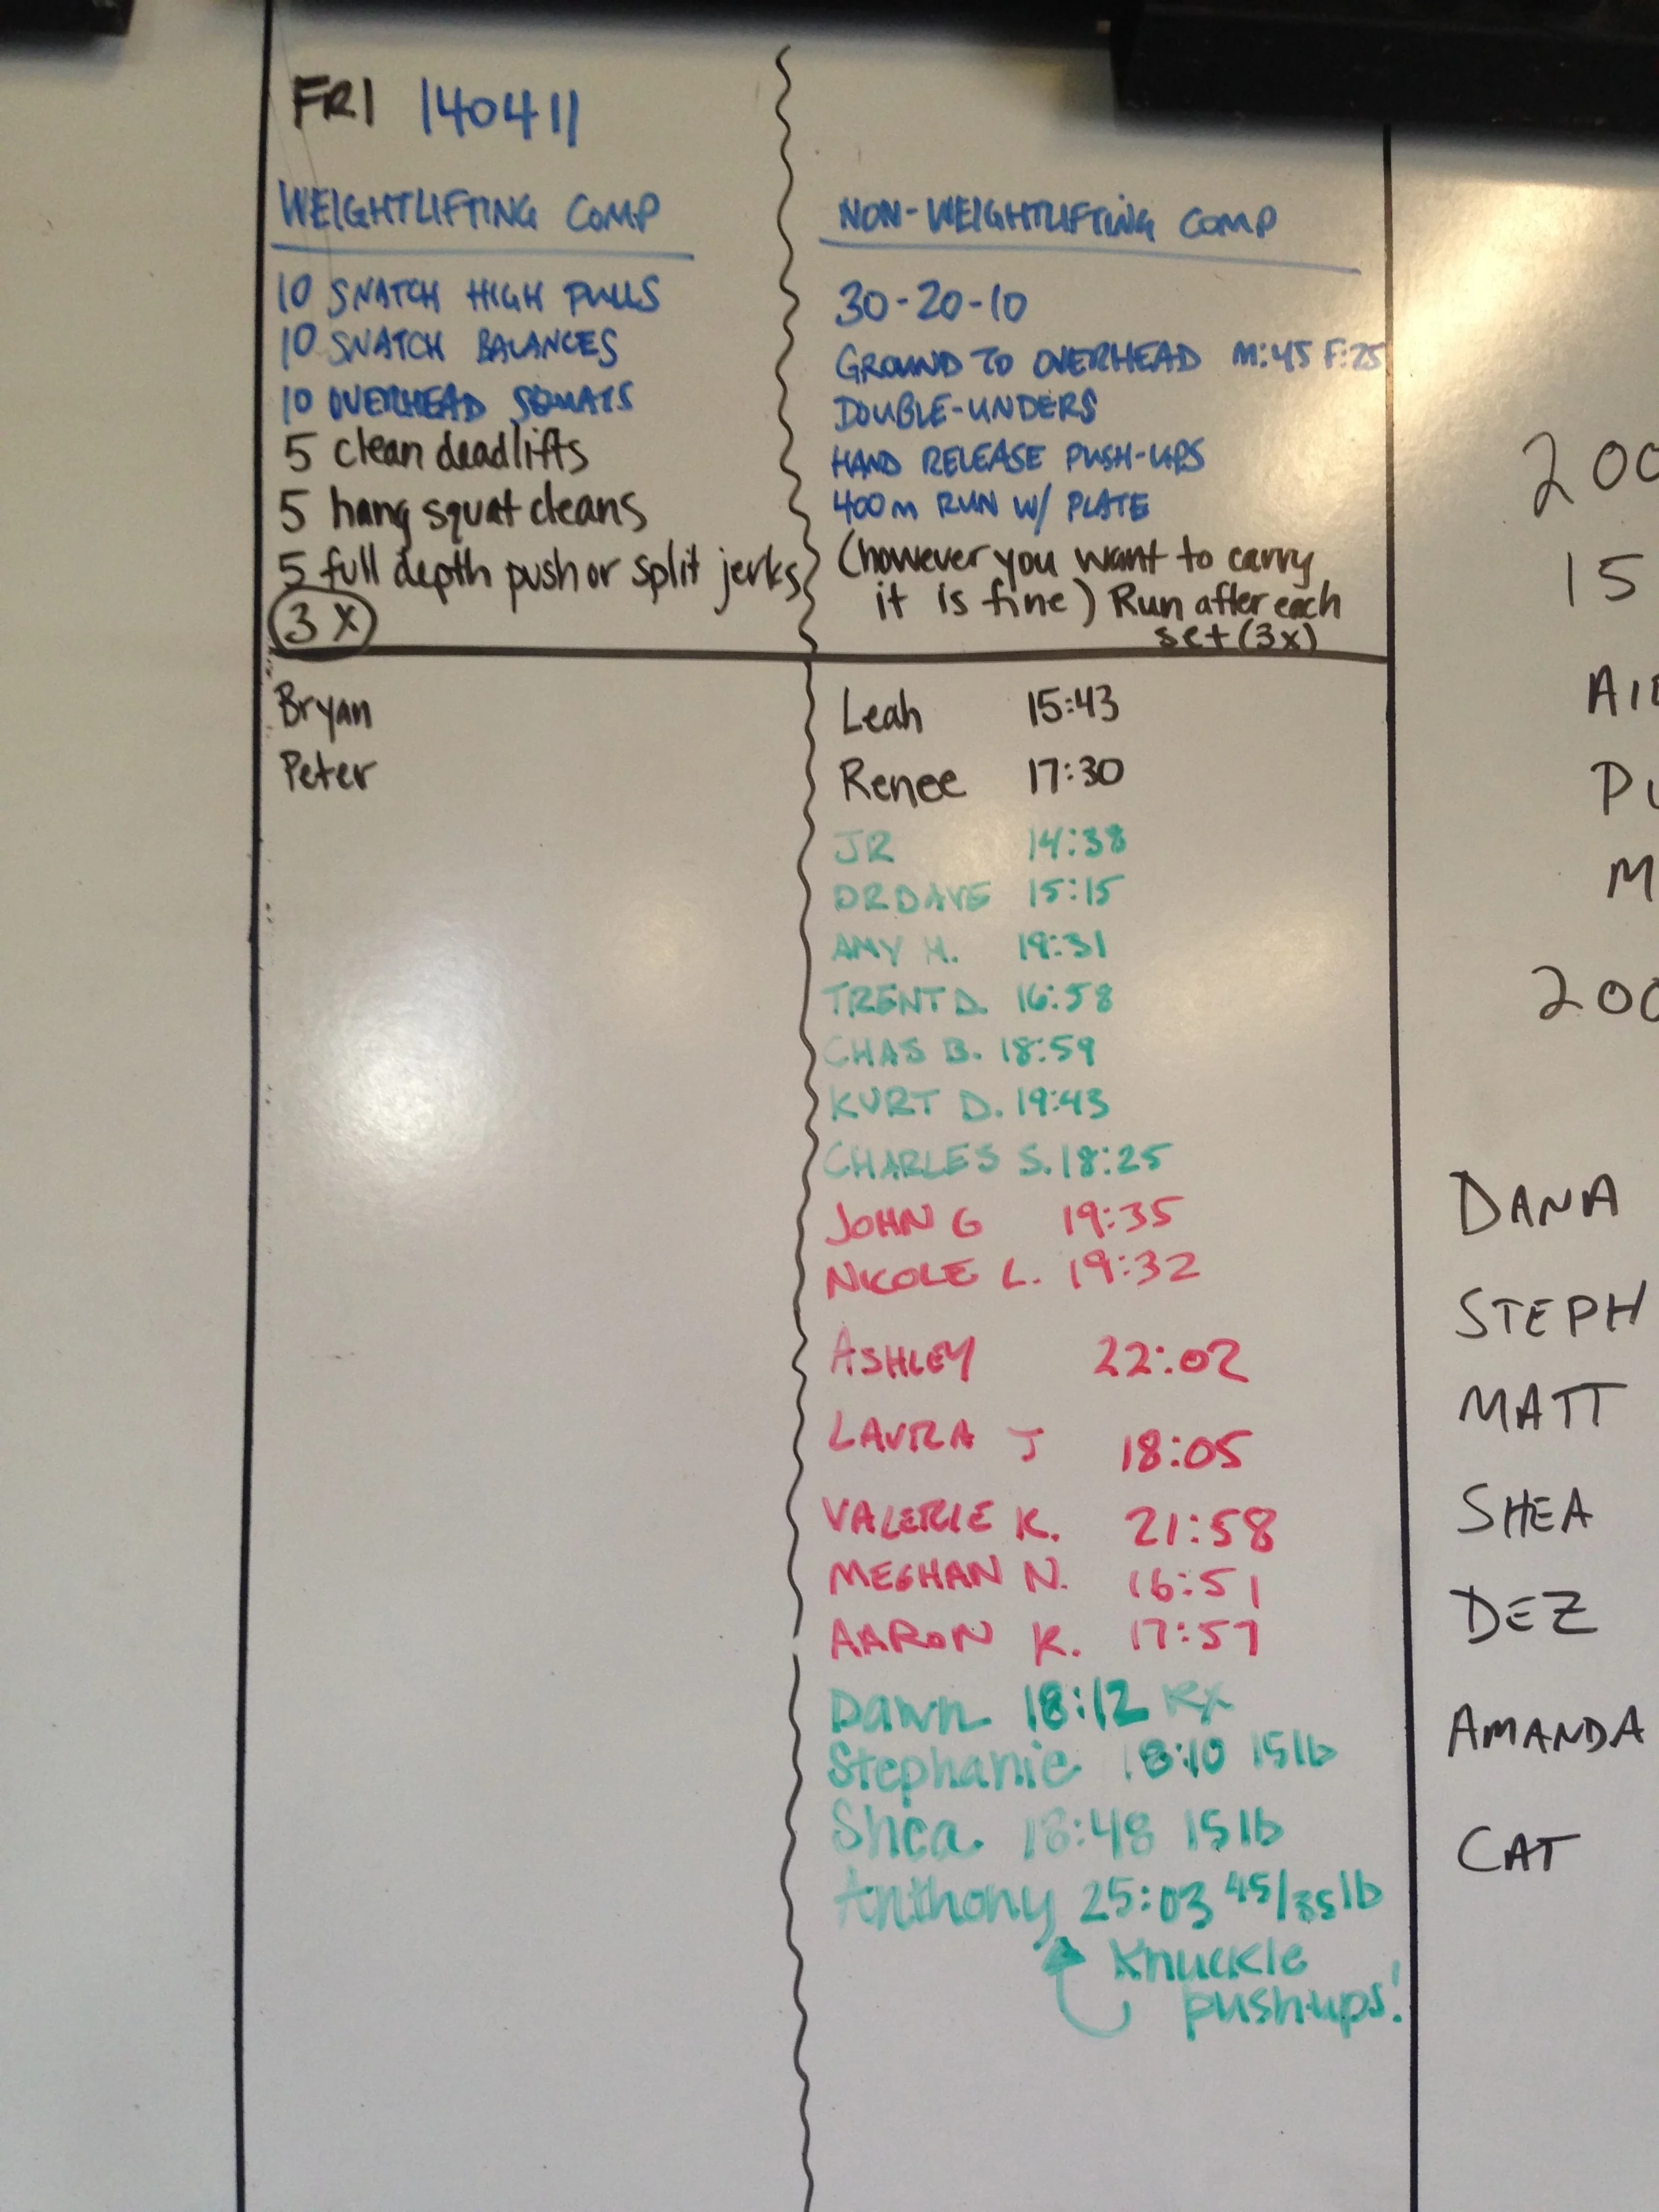 FRI 140411
WEIGHTLIFTING COMP
10 SNATCH HIGH PULLS
10 SNATCH BALANCES
10 OVERHEAD SQUATS
5 clean deadlifts
5 hang squat cleans
5 full depth push or split jerks
3 X
Bryan
Peter
NON-WEIGHTLIFTING COMP
30-20-10
GROUND TO OVERHEAD M:45 F:25
DOUBLE-UNDERS
HAND RELEASE PUSH-UPS
400m RUN W/ PLATE
(however you want to carry
it is fine) Run after each
set (3x)
Leah 15:43
Renee 17:30
JR 14:38
DR DAVE 15:15
AMY H. 19:31
TRENT D. 16:58
CHAS B. 18:59
KURT D. 19:43
CHARLES S. 18:25
JOHN G 19:35
NICOLE L. 19:32
ASHLEY 22:02
LAURA J 18:05
VALERIE K. 21:58
MEGHAN N. 16:51
AARON K. 17:57
Dawn 18:12 Rx
Stephanie 18:10 15lb
Shea 18:48 15lb
Anthony 25:03 45/35lb
Knuckle
push-ups!
200
15
DANA
STEPH
MATT
SHEA
DEZ
AMANDA
CAT